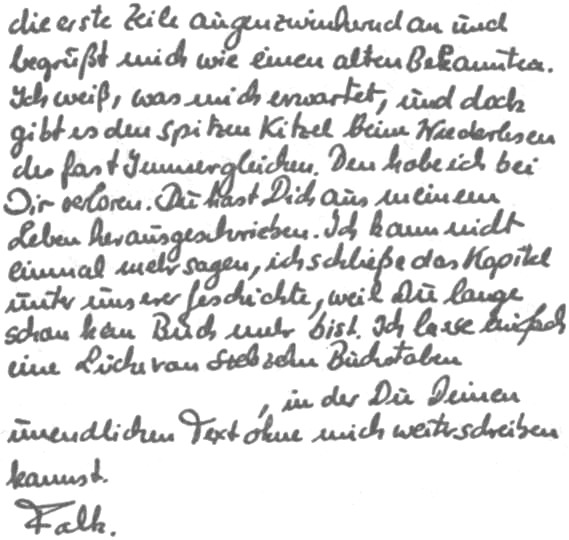 die erste Zeile augenzwinkernd an und
begrüßt mich wie einen alten Bekannten.
Ich weiß, was mich erwartet, und doch
gibt es den spitzen Kitzel beim Wiederlesen
des fast Immergleichen. Den habe ich bei
Dir verloren. Du hast Dich aus meinem
Leben herausgeschrieben. Ich kann nicht
einmal mehr sagen, ich schließe das Kapitel
unter unserer Geschichte, weil Du lange
schon kein Buch mehr bist. Ich lasse einfach
eine Lücke von siebzehn Buchstaben
, in der Du Deinen
unendlichen Text ohne mich weiterschreiben
kannst.
Falk.